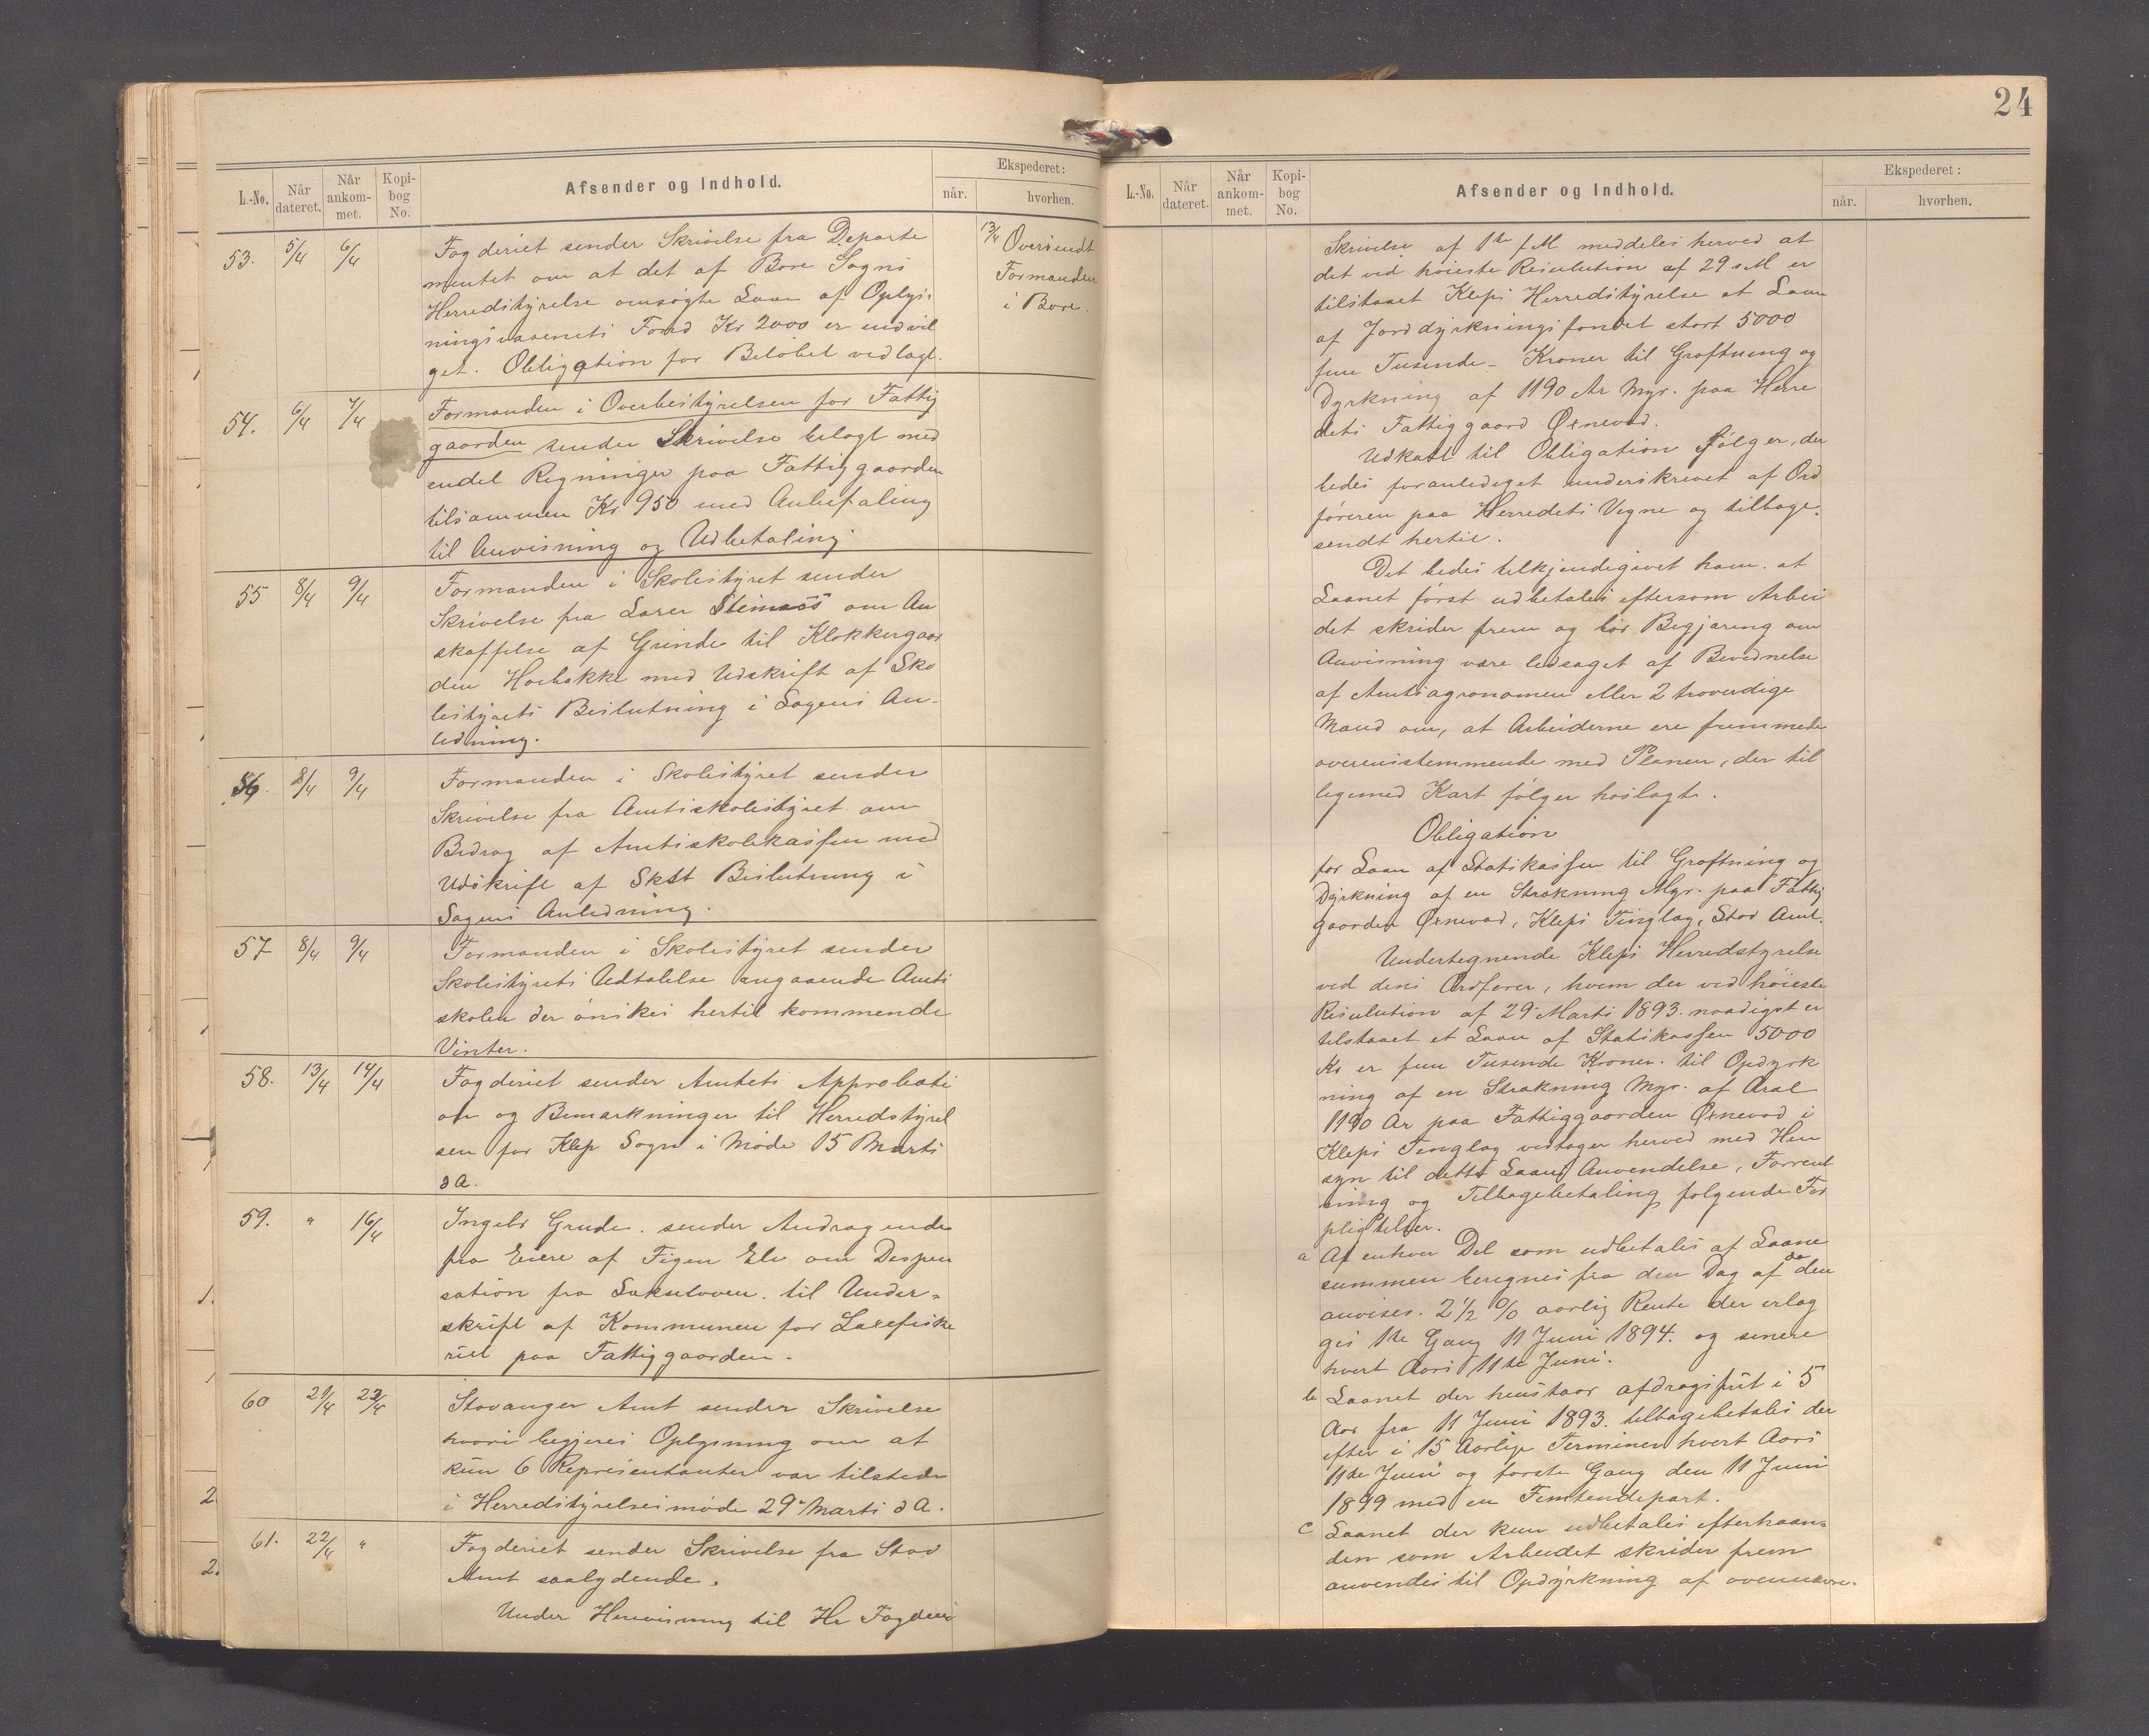 L.-No. Når dateret. Når ankommet. Kopibog No. Afsender og Indhold. Ekspederet: når. hvorhen.
53. 5/4 6/4 Fogderiet sender Skrivelse fra Departe 13/4 Oversendt
mentet om at det af Bore Sogns Formanden
Herredstyrelse ansøgte Laan af Oplys- i Bore.
ningsvæsenets Fond Kr 2000 er indvil
get. Obligation for Beløbet vedlagt.
54. 6/4 7/4 Formanden i Overbestyrelsen for Fattig
gaarden sender Skrivelse bilagt med
endel Regninger paa Fattiggaarden
tilsammen Kr 950 med Anbefaling
til Anvisning og Udbetaling.
55 8/4 9/4 Formanden i Skolestyret sender
Skrivelse fra Lærer Steinnæs om An
skaffelse af Grinde til Klokkergaar
den Hoebakke med Udskrift af Sko
lestyrets Beslutning i Sagens An-
ledning.
56. 8/4 9/4 Formanden i Skolestyret sender
Skrivelse fra Amtsskolestyret om
Bidrag af Amtsskolekassen med
Udskrift af Skst Beslutning i
Sagens Anledning.
57 8/4 9/4 Formanden i Skolestyret sender
Skolestyrets Udtalelse angaaende Amts
skolen der ønskes hertil kommende
Vinter.
58. 13/4 14/4 Fogderiet sender Amtets Approbati
on og Bemærkninger til Herredstyrel
sen for Klep Sogn i Møde 15 Marts
d A.
59. " 16/4 Ingebr Grude. sender Andragende
fra Eiere af Figen Elv om Dispen
sation fra Lakseloven. til Under-
skrift af Kommunen for Laxefiske
riet paa Fattiggaarden.
60 21/4 22/4 Stavanger Amt sender Skrivelse
hvori begjeres Oplysning om at
kun 6 Repræsentanter var tilstede
i Herredstyrelsesmøde 29 Marts d A.
61. 22/4 " Fogderiet sender Skrivelse fra Stav
Amt saalydende.
Under Henvisning til Hr Fogdens
24
L.-No. Når dateret. Når ankommet. Kopibog No. Afsender og Indhold. Ekspederet: når. hvorhen.
Skrivelse af 1te f M meddeles herved at
det ved høieste Resolution af 29 s M er
tilstaaet Kleps Herredstyrelse et Laan
af Jorddyrkningsfondet stort 5000
fem Tusende - Kroner til Grøftning og
Dyrkning af 1190 Ar Myr. paa Herre
dets Fattiggaard Øxnevad.
Udkast til Obligation følger, der
bedes foranlediget underskrevet af Ord
føreren paa Herredets Vegne og tilbage.
sendt hertil.
Det bedes tilkjendegivet ham. at
Laanet først udbetales eftersom Arbei
det skrider frem og bør Begjæring om
Anvisning være ledsaget af Bevidnelse
af Amtsagronomen eller 2 troværdige
Mænd om, at Arbeiderne ere fremmede
overensstemmende med Planen, der til
ligemed Kart følger hoslagt.
Obligation
for Laan af Statskassen til Grøftning og
Dyrkning af en Strækning Myr. paa Fattig
gaarden Øxnevad, Kleps Tinglag, Stav Amt.
Undertegnende Kleps Herredstyrelse
ved dens Ordfører, hvem der ved høieste
Resolution af 29 Marts 1893. naadigst er
tilstaaet et Laan af Statskassen 5000
Kr er fem Tusende Kroner. til Opdyrk
ning af en Strækning Myr. af Aral
1190 Ar paa Fattiggaarden Øxnevad i
Kleps Tinglag vedtager herved med Hen
syn til dette Laans Anvendelse, Forrent
ning og Tilbagebetaling følgende For
pligtelser.
a Af enhver Del som udbetales af Laane
summen beregnes fra den Dag af da den
anvises. 2 1/2 % aarlig Rente der erlæg
ges 1te Gang 11 Juni 1894. og senere
hvert Aars 11te Juni.
b Laanet der henstaar afdragsfrit i 5
Aar fra 11 Juni 1893. tilbagebetales der
efter i 15 Aarlige Terminer hvert Aars
11te Juni og første Gang den 11 Juni
1899 med en Femtendepart.
c Laanet der kun udbetales efterhaan-
den som Arbeidet skrider frem
anvendes til Opdyrkning af ovennævn-